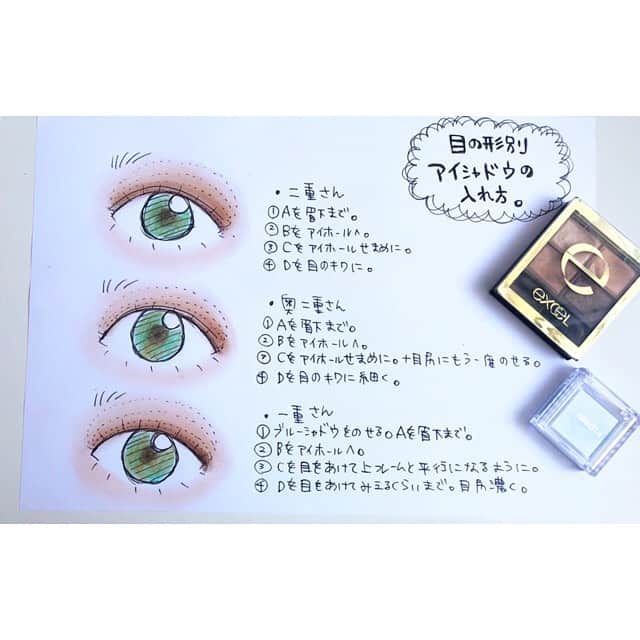 目の形別
アイシャドウの
入れ方。
・二重さん
①Aを眉下まで。
②Bをアイホールへ。
③Cをアイホールせまめに。
④Dを目のキワに。
・奥二重さん
①Aを眉下まで。
②Bをアイホールへ。
③Cをアイホールせまめに。+目尻にもう一度のせる。
④Dを目のキワに細く。
・一重さん
①ブルーシャドウをのせる。Aを眉下まで。
②Bをアイホールへ。
③Cを目をあけて上フレームと平行になるように。
④Dを目をあけてみえるくらいまで。目尻濃く。
e
excel